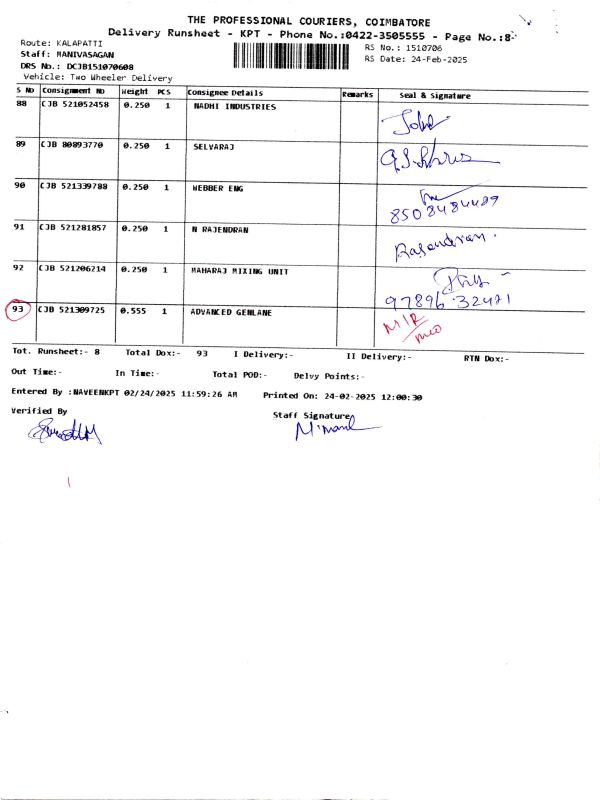 THE PROFESSIONAL COURIERS, COIMBATORE
Delivery Runsheet - KPT - Phone No.:0422-3505555 - Page No.:8
Route: KALAPATTI
Staff: MANIVASAGAN
DRS No.: DCJB151070608
Vehicle: Two Wheeler Delivery
RS No.: 1510706
RS Date: 24-Feb-2025
S No Consignment No Weight PCS Consignee Details Remarks Seal & Signature
88 CJB 521052458 0.250 1 NADHI INDUSTRIES
89 CJB 80893770 0.250 1 SELVARAJ
90 CJB 521339788 0.250 1 WEBBER ENG
8508484489
91 CJB 521281857 0.250 1 N RAJENDRAN Rajendran.
92 CJB 521206214 0.250 1 MAHARAJ MIXING UNIT
97896 32421
93 CJB 521309725 0.555 1 ADVANCED GENLANE M/R
Tot. Runsheet:- 8 Total Dox:- 93 I Delivery:- II Delivery:- RTN Dox:-
Out Time:- In Time:- Total POD:- Delvy Points:-
Entered By :NAVEENKPT 02/24/2025 11:59:26 AM Printed On: 24-02-2025 12:00:30
Verified By Staff Signature